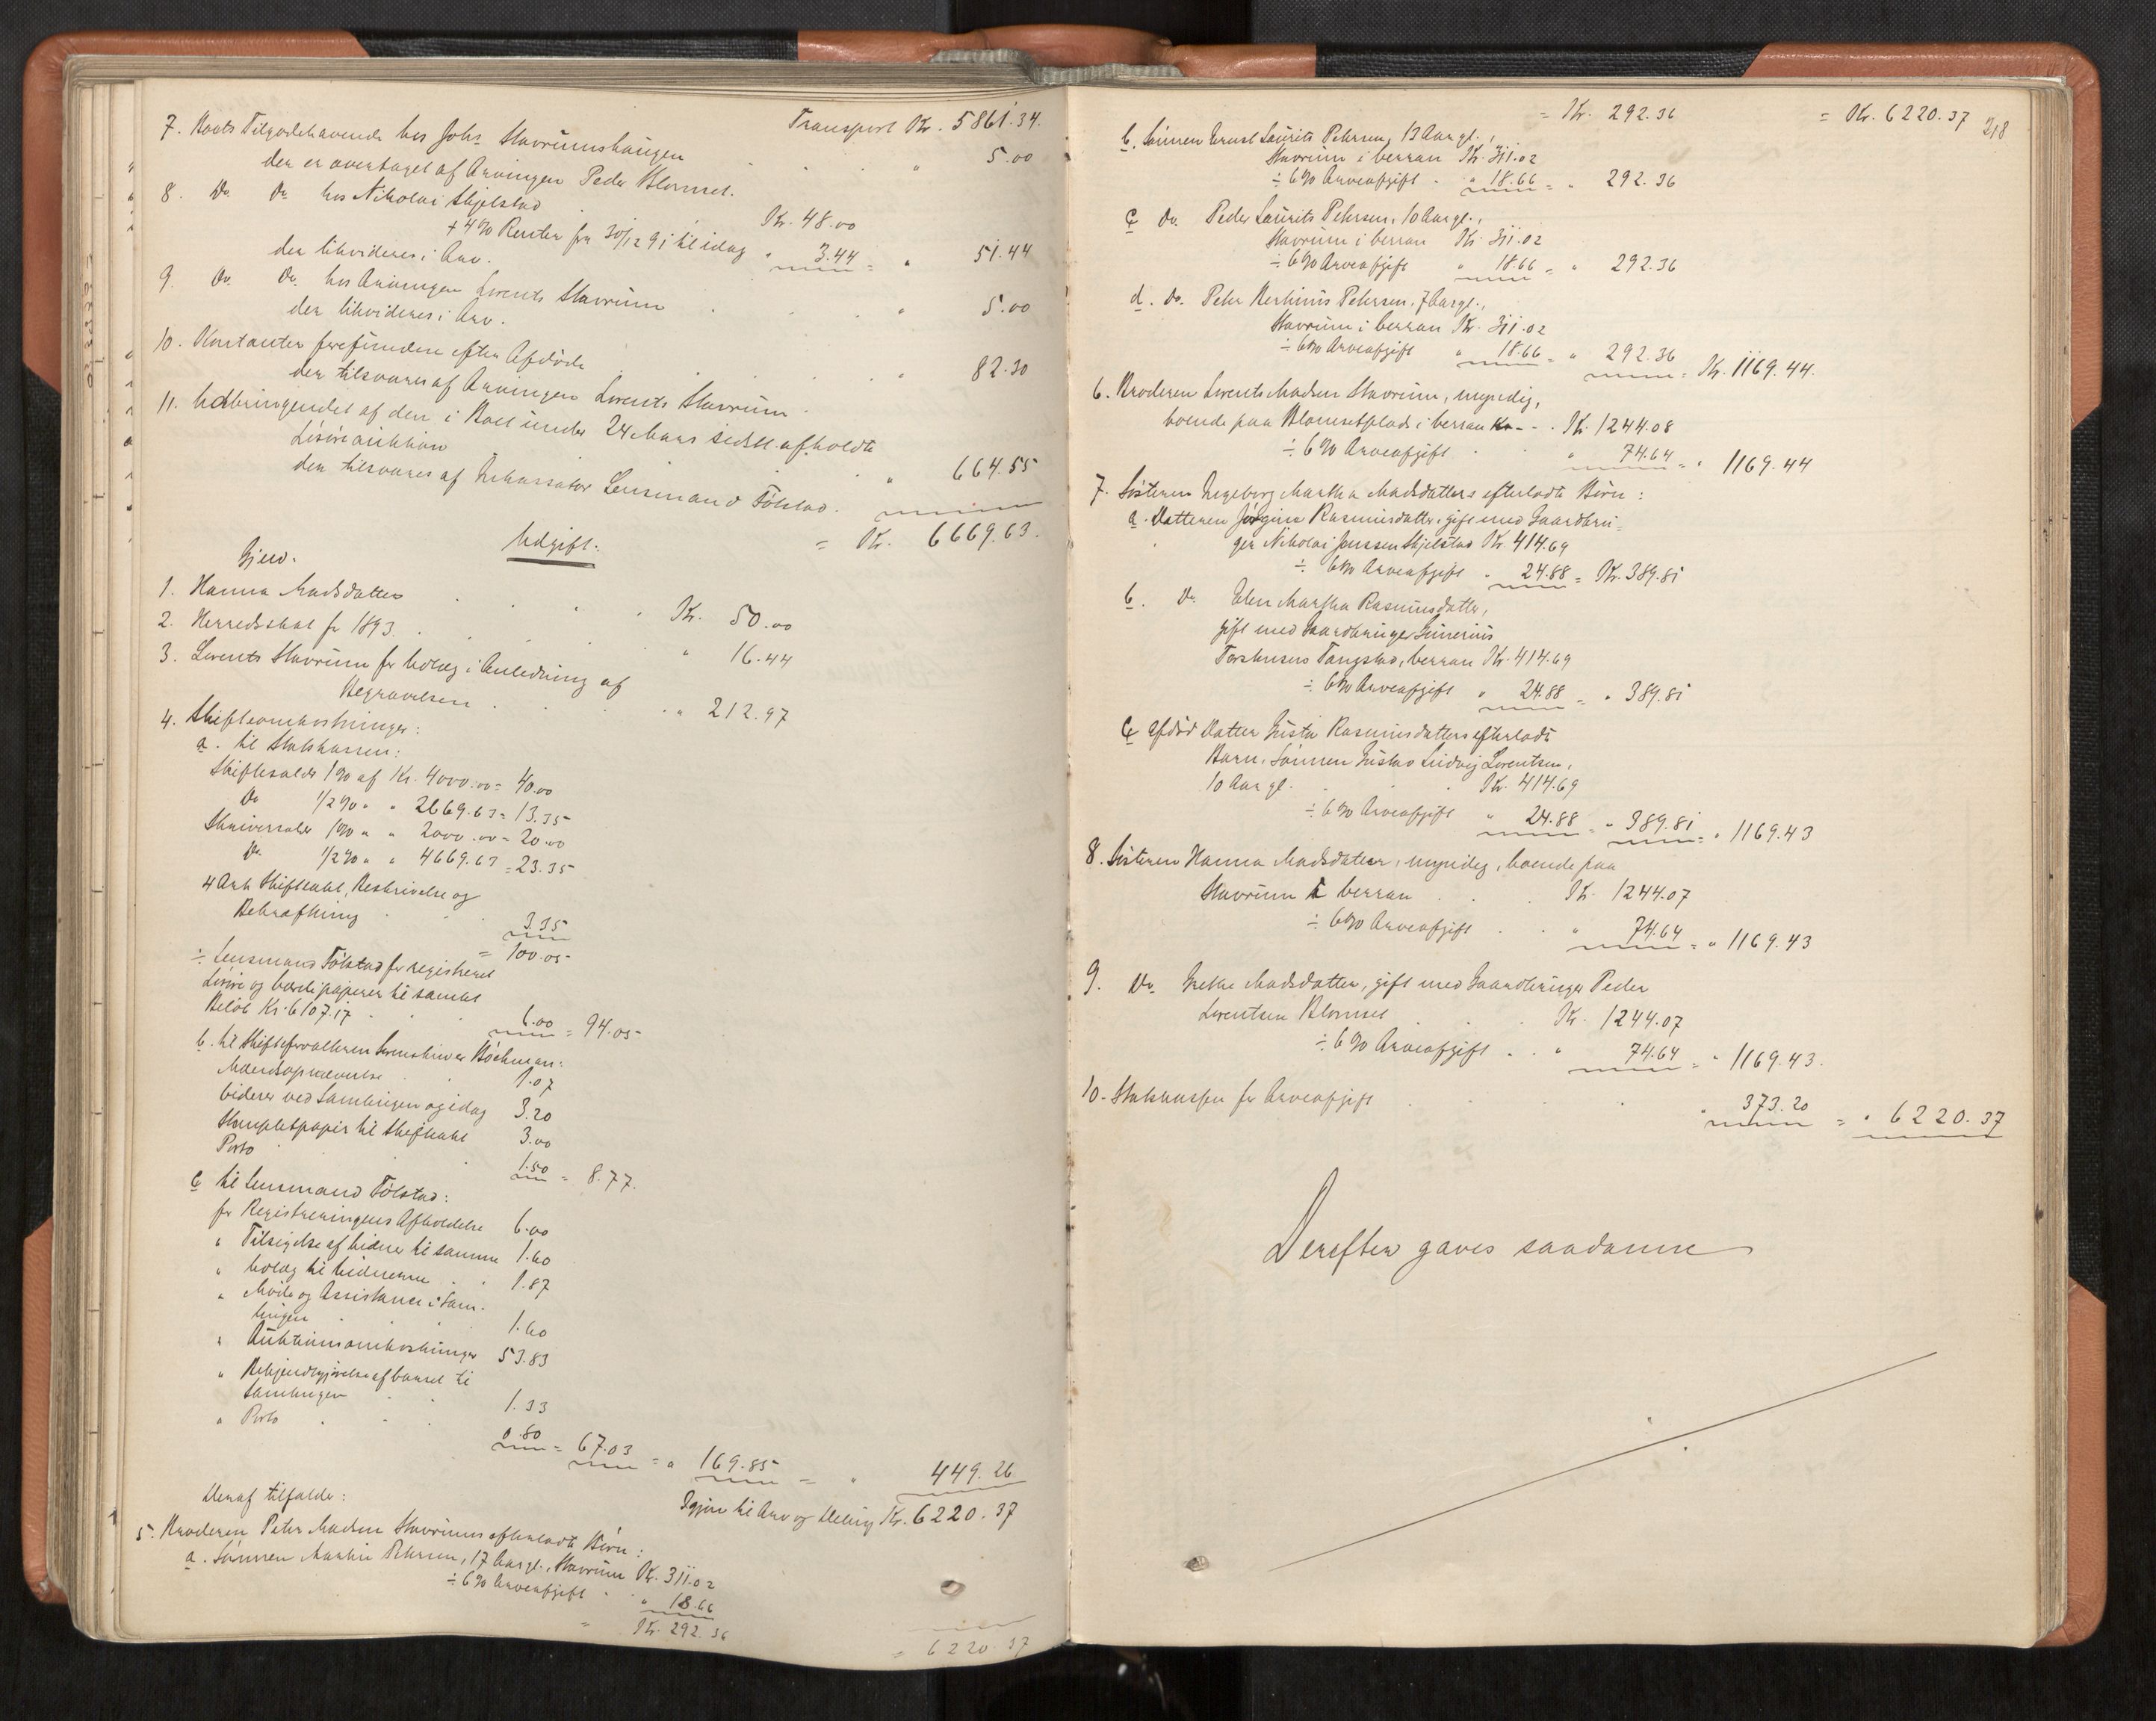 Transport Kr. 5861.34.
7. Boets Tilgodehavende hos Johs. Stavrumshaugen " 5.00
der er overtaget af Arvingen Peder Blomset.
8. Do. Do. hos Nikolai Skjelstad Kr. 48.00
+ 4% Renter fra 30/12 91 til idag " 3.44 = " 51.44
der likvideres i Arv.
9. Do. Do. hos Arvingen Lorents Stavrum " 5.00
der likvideres i Arv.
10. Kontanter forefundne efter Afdøde " 82.30
der tilsvares af Arvingen Lorents Stavrum.
11. Udbringendet af den i Boet under 24 Mars sidstl. afholdte
Løsøreauktion " 664.55
der tilsvares af Inkassator Lensmand Følstad.
= Kr. 6669.63.
Udgift:
Gjæld.
1. Hanna Madsdatter Kr. 50.00
2. Herredsskat for 1893. " 16.44
3. Lorents Stavrum for Udlæg i Anledning af
Begravelsen " 212.97
4. Skifteomkostninger:
a. til Statskassen:
Skiftesalær 1% af Kr. 4000.00 = 40.00
Do 1/2% " " 2669.63 = 13.35
Skriversalær 1% " " 2000.00 = 20.00
Do. 1/2% " " 4669.63 = 23.35
4 Ark Skifteakt, Beskrivelse og
Bekræftning 3.35
= 100.05
÷ Lensmand Følstad for registreret
Løsøre og Værdipapirer til samlet
Beløb Kr. 6107.17 6.00 = 94.05
b. til Skifteforvalteren Sorenskriver Bøckman:
1.07
Vidner ved Samlingen og idag 3.20
Stempletpapir til Skifteakt 3.00
Porto 1.50 = 8.77.
c. til Lensmand Følstad:
for Registreringens Afholdelse 6.00
" Tilsigelse af Vidner til samme 1.60
" Udlæg til Vidnerne 1.87
" Møde og Assistance i Sam-
lingen 1.60
" Auktionsomkostninger 53.83
" Bekjendtgjørelse af Varsel til
Samlingen 1.33
" Porto 0.80 = 67.03 = " 169.85 = " 449.26
Igjen til Arv og Deling Kr. 6220.37
Deraf tilfalder:
5. Broderen Peter Madsen Stavrums efterladte Børn:
a. Sønnen Martin Petersen, 17 Aar gl., Stavrum Kr. 311.02
÷ 6% Arveafgift " 18.66
= Kr. 292.36
= 6220.37
= Kr. 292.36 = Kr. 6220.37
218
b. Sønnen Ernst Laurits Petersen, 13 Aar gl.,
Stavrum i Verran Kr. 311.02
÷ 6% Arveafgift " 18.66 = " 292.36
c. Do. Peder Laurits Petersen, 10 Aar gl.,
Stavrum i Verran Kr. 311.02
÷ 6% Arveafgift " 18.66 = " 292.36
d. Do. Peter Kertinus Petersen, 7 Aar gl.,
Stavrum i Verran Kr. 311.02
÷ 6% Arveafgift " 18.66 = " 292.36 = Kr. 1169.44.
6. Broderen Lorents Madsen Stavrum, myndig,
boende paa Blomsetplads i Verran Kr. 1244.08
÷ 6% Arveafgift " 74.64 = " 1169.44
7. Søsteren Ingeborg Martha Madsdatters efterladte Børn:
a. Datteren Jørgine Rasmusdatter, gift med Gaardbru-
ger Nikolai Jonssen Skjelstad Kr. 414.69
÷ 6% Arveafgift " 24.88 = Kr. 389.81
b. Do. Elen Martha Rasmusdatter,
gift med Gaardbruger Gunerius
Torstensen Tangstad, Verran Kr. 414.69
÷ 6% Arveafgift " 24.88 = " 389.81
c. Afdød Datter Gusta Rasmusdatters efterladte
Barn, Sønnen Gustav Ludvig Lorentsen,
10 Aar gl. Kr. 414.69
÷ 6% Arveafgift " 24.88 = " 389.81 = " 1169.43
8. Søsteren Hanna Madsdatter, myndig, boende paa
Stavrum i Verran Kr. 1244.07
÷ 6% Arveafgift " 74.64 = " 1169.43
9. Do. Grethe Madsdatter, gift med Gaardbruger Peder
Lorentsen Blomset Kr. 1244.07
÷ 6% Arveafgift " 74.64 = " 1169.43.
10. Statskassen for Arveafgift " 373.20 = " 6220.37
Derefter gaves saadanne